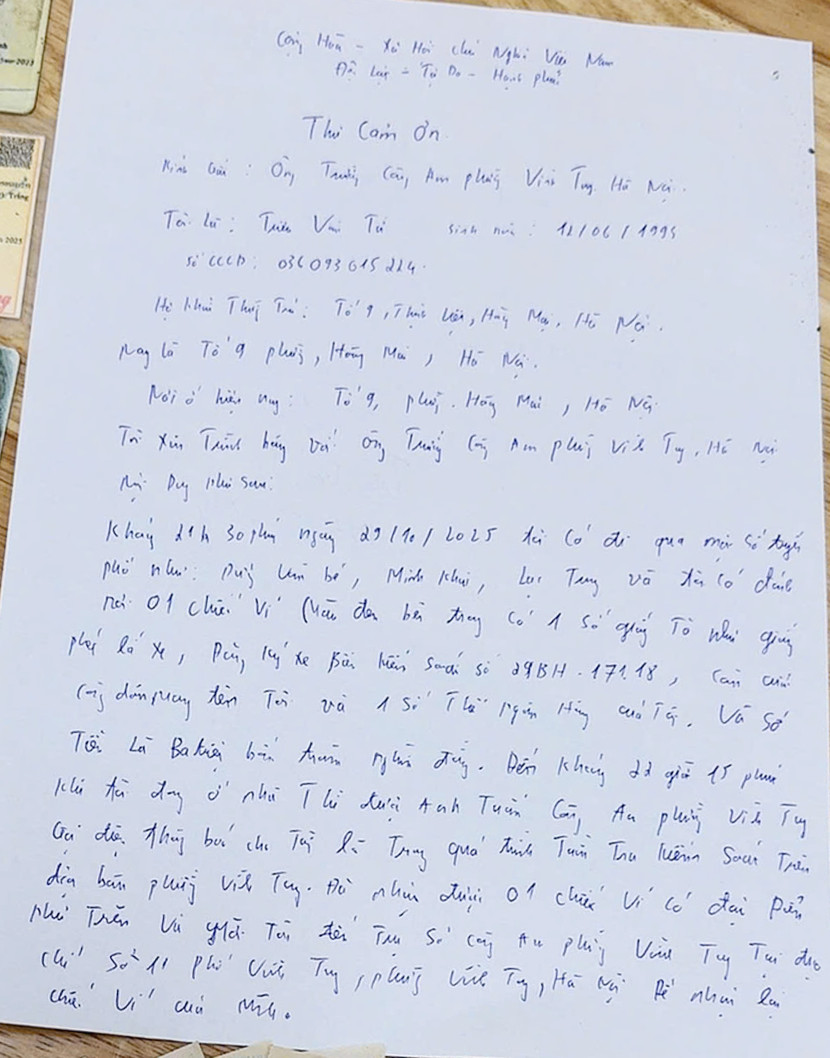 Cộng Hòa - Xã Hội chủ Nghĩa Việt Nam
Độc Lập - Tự Do - Hạnh phúc
Thư Cảm Ơn
Kính Gửi : Ông Trưởng Công An phường Vĩnh Tuy. Hà Nội.
Tôi là : Trần Văn Tú sinh năm : 12/06/1993
số CCCD: 036093615224.
Hộ khẩu Thường Trú : Tổ 9, Thịnh Liệt, Hoàng Mai, Hà Nội.
Nay là Tổ 9 phường, Hoàng Mai, Hà Nội.
Nơi ở hiện nay : Tổ 9, phường. Hoàng Mai, Hà Nội
Tôi xin Trình bày với ông Trưởng Công An phường Vĩnh Tuy, Hà Nội
Nội Dung Như Sau:
Khoảng 21h 30 phút ngày 29/10/2025 tôi có đi qua một số tuyến
phố như: Dương Văn bé, Minh Khai, Lạc Trung và tôi có đánh
rơi 01 chiếc Ví (Màu đen bên trong có 1 số giấy Tờ như giấy
phép lái xe, Đăng ký xe Biển kiểm soát số 29BH-171.18, Căn cước
công dân mang tên Tôi và 1 số Thẻ Ngân Hàng của Tôi. Và số
Tiền Là Ba triệu bốn trăm nghìn đồng. Đến khoảng 22 giờ 15 phút
khi tôi đang ở nhà Thì được Anh Tuấn Công An phường Vĩnh Tuy
Gọi điện thông báo cho Tôi là Trong quá trình Tuần Tra kiểm Soát Trên
địa bàn phường Vĩnh Tuy. Đã nhận được 01 chiếc Ví có đặc điểm
như Trên Và mời Tôi đến Trụ sở công An phường Vĩnh Tuy Tại địa
chỉ Số 11 phố Vĩnh Tuy, phường Vĩnh Tuy, Hà Nội Để nhận lại
chiếc Ví của Mình.